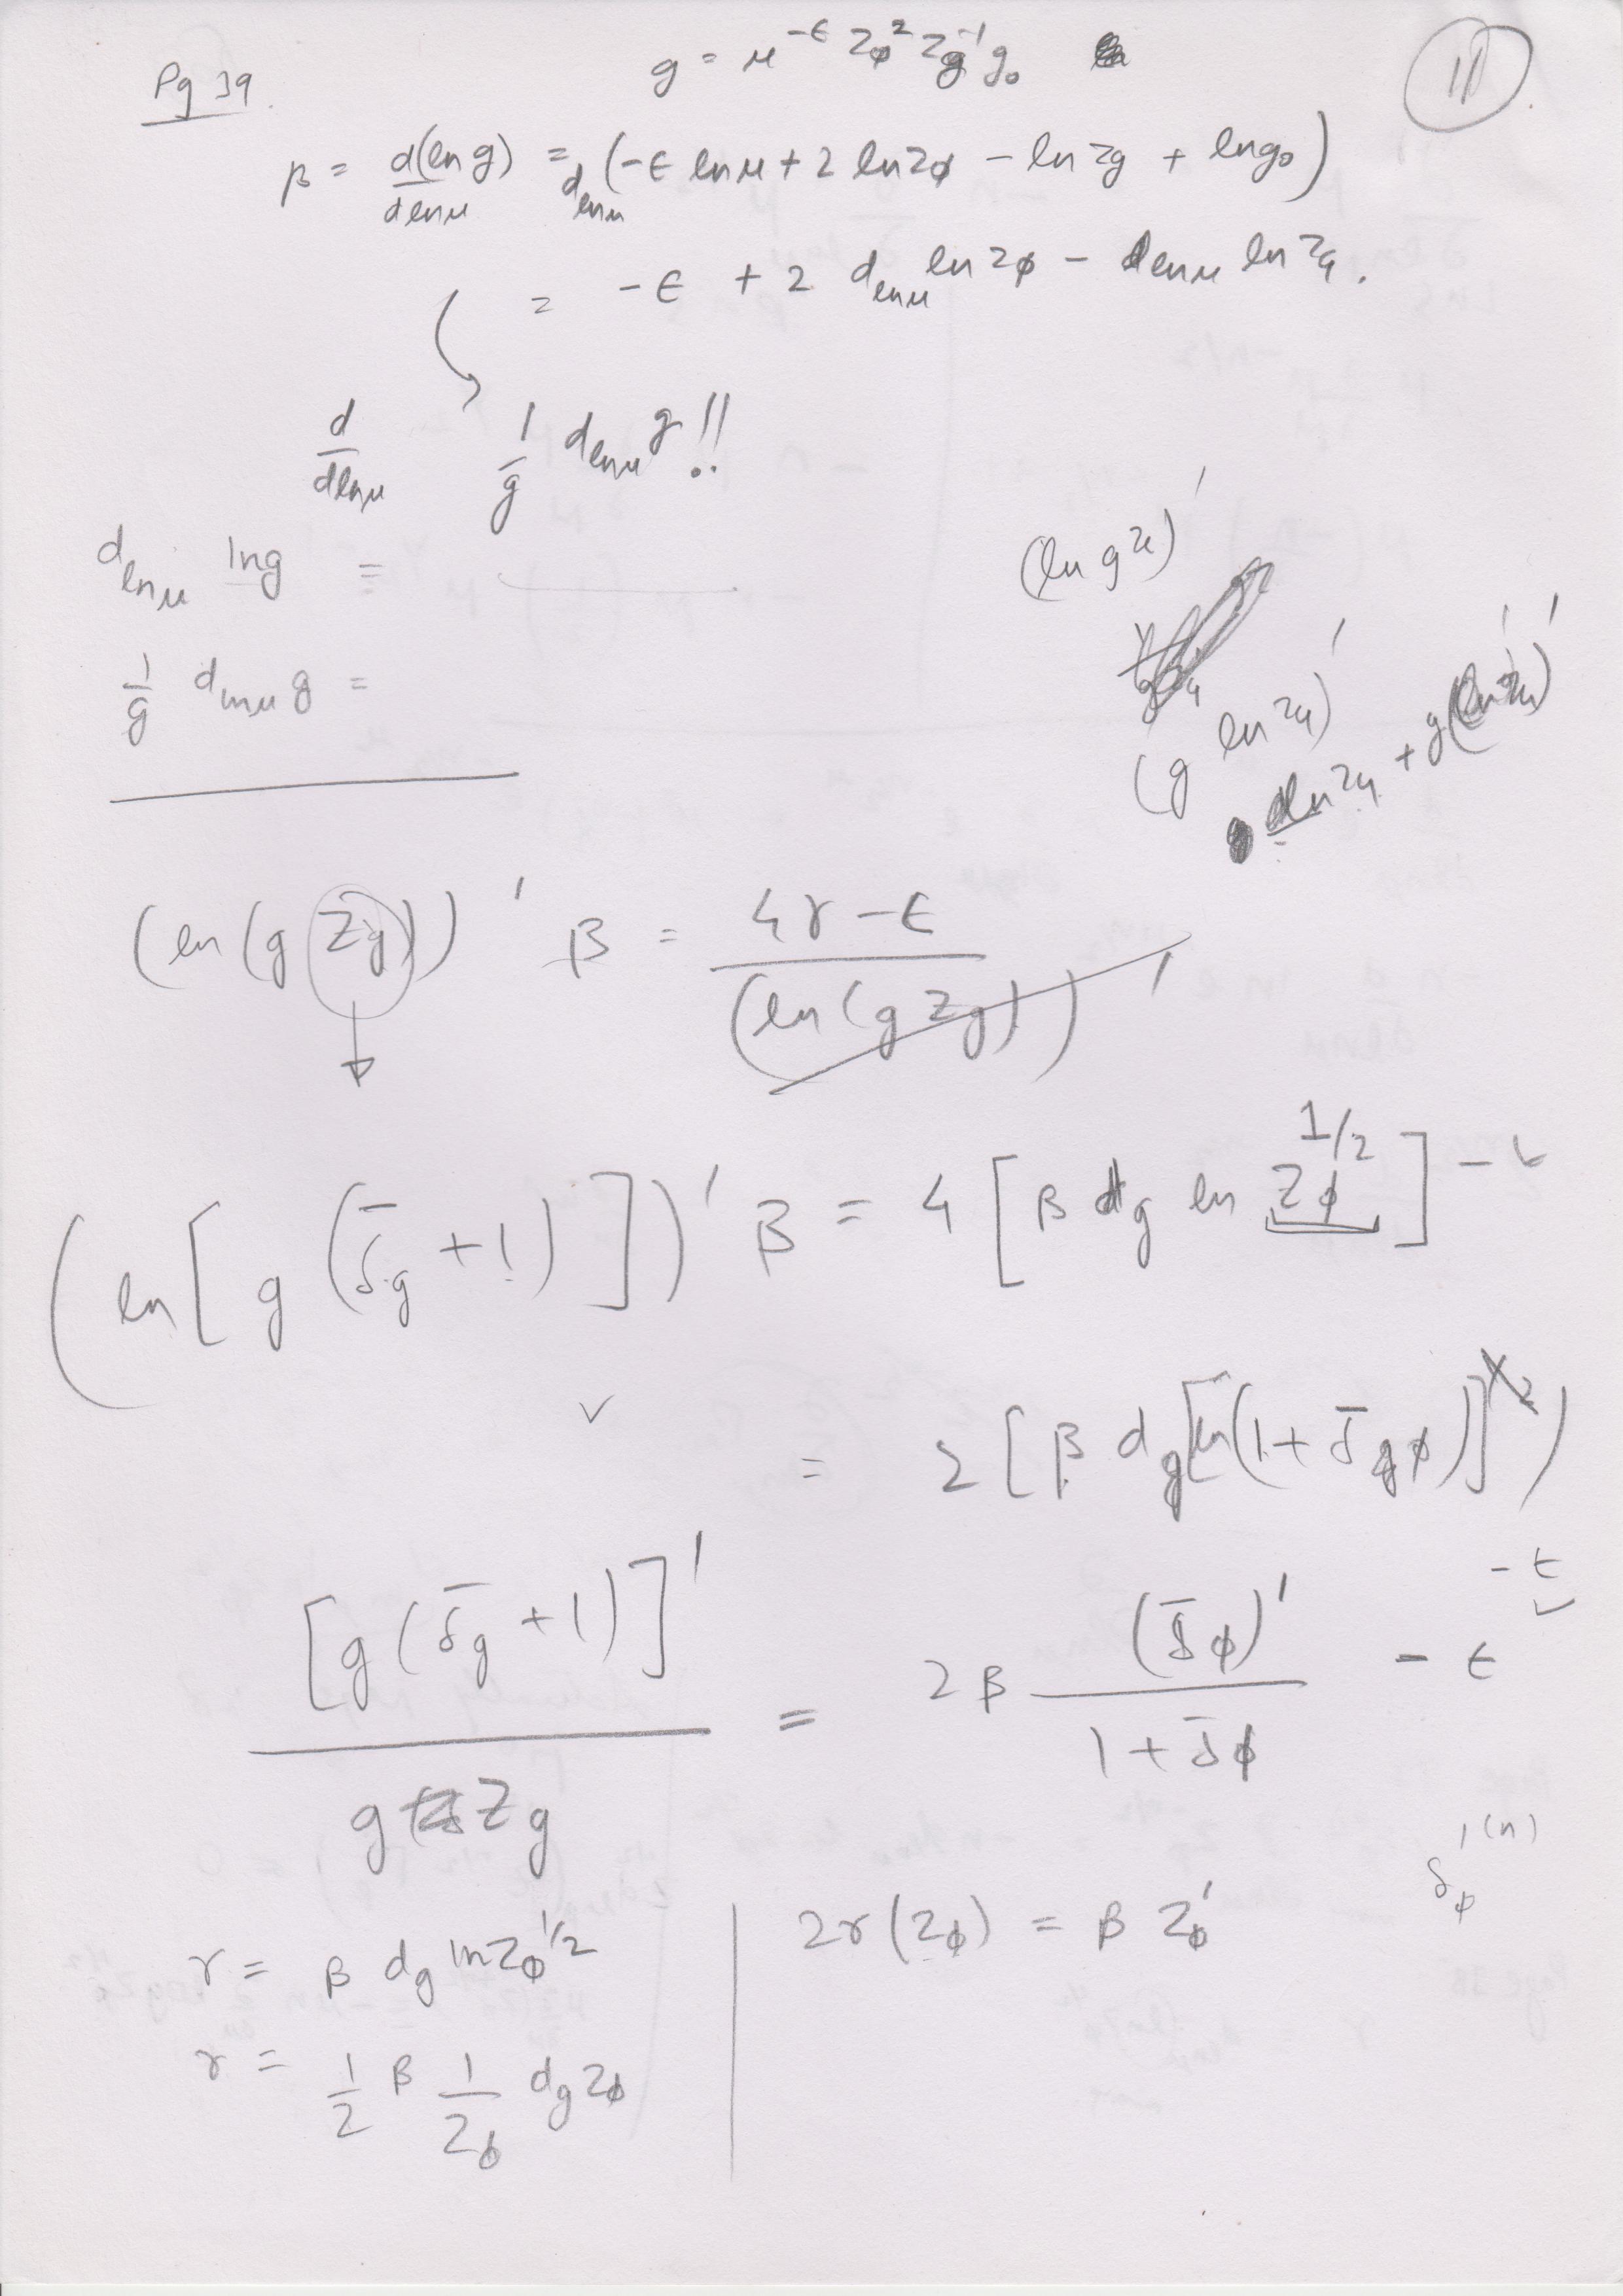 g = μ^{-ϵ} Zϕ² Zg^{-1} g₀
Pg 39.
11
β = d(ln g)/d lnμ = d_{lnμ}(-ϵ lnμ + 2 ln Zϕ - ln Zg + ln g₀)
= -ϵ + 2 d_{lnμ} ln Zϕ - d_{lnμ} ln Zg.
d/d lnμ 1/g d_{lnμ} g!!
d_{lnμ} ln g =
1/g d_{lnμ} g =
(ln g Z₄)'
(g ln Z₄)'
d ln Z₄ + g(ln Z₄)'
(ln (g Zg))' β = 4γ - ϵ / (ln (g Zg))'
(ln [g (δ̄g + 1)])' β = 4 [β d_g ln Zϕ^{1/2}] - ϵ
= 2 [β d_g [ln (1 + δ̄ϕ)])
- ϵ
[g (δ̄g + 1)]' / g Zg = 2β (δ̄ϕ)' / 1 + δ̄ϕ - ϵ
δϕ'^{(n)}
γ = β d_g ln Zϕ^{1/2}
γ = 1/2 β 1/Zϕ d_g Zϕ
2γ (Zϕ) = β Zϕ'